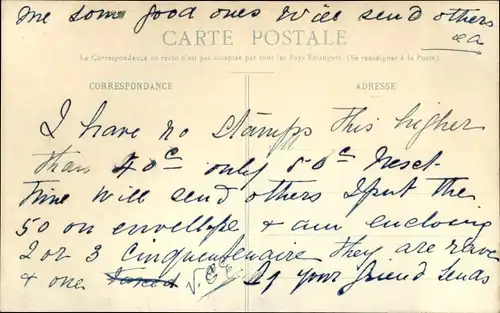 me some good ones Will send others
&a
CARTE POSTALE
La Correspondance au recto n'est pas acceptée par tous les Pays Étrangers. (Se renseigner à la Poste).
CORRESPONDANCE
ADRESSE
I have no Stamps this higher
than 40c only 80c Next
time Will send others I put the
50 on envelope & am enclosing
2 or 3 Cinquentenaire they are rare
& one V. If your friend sends